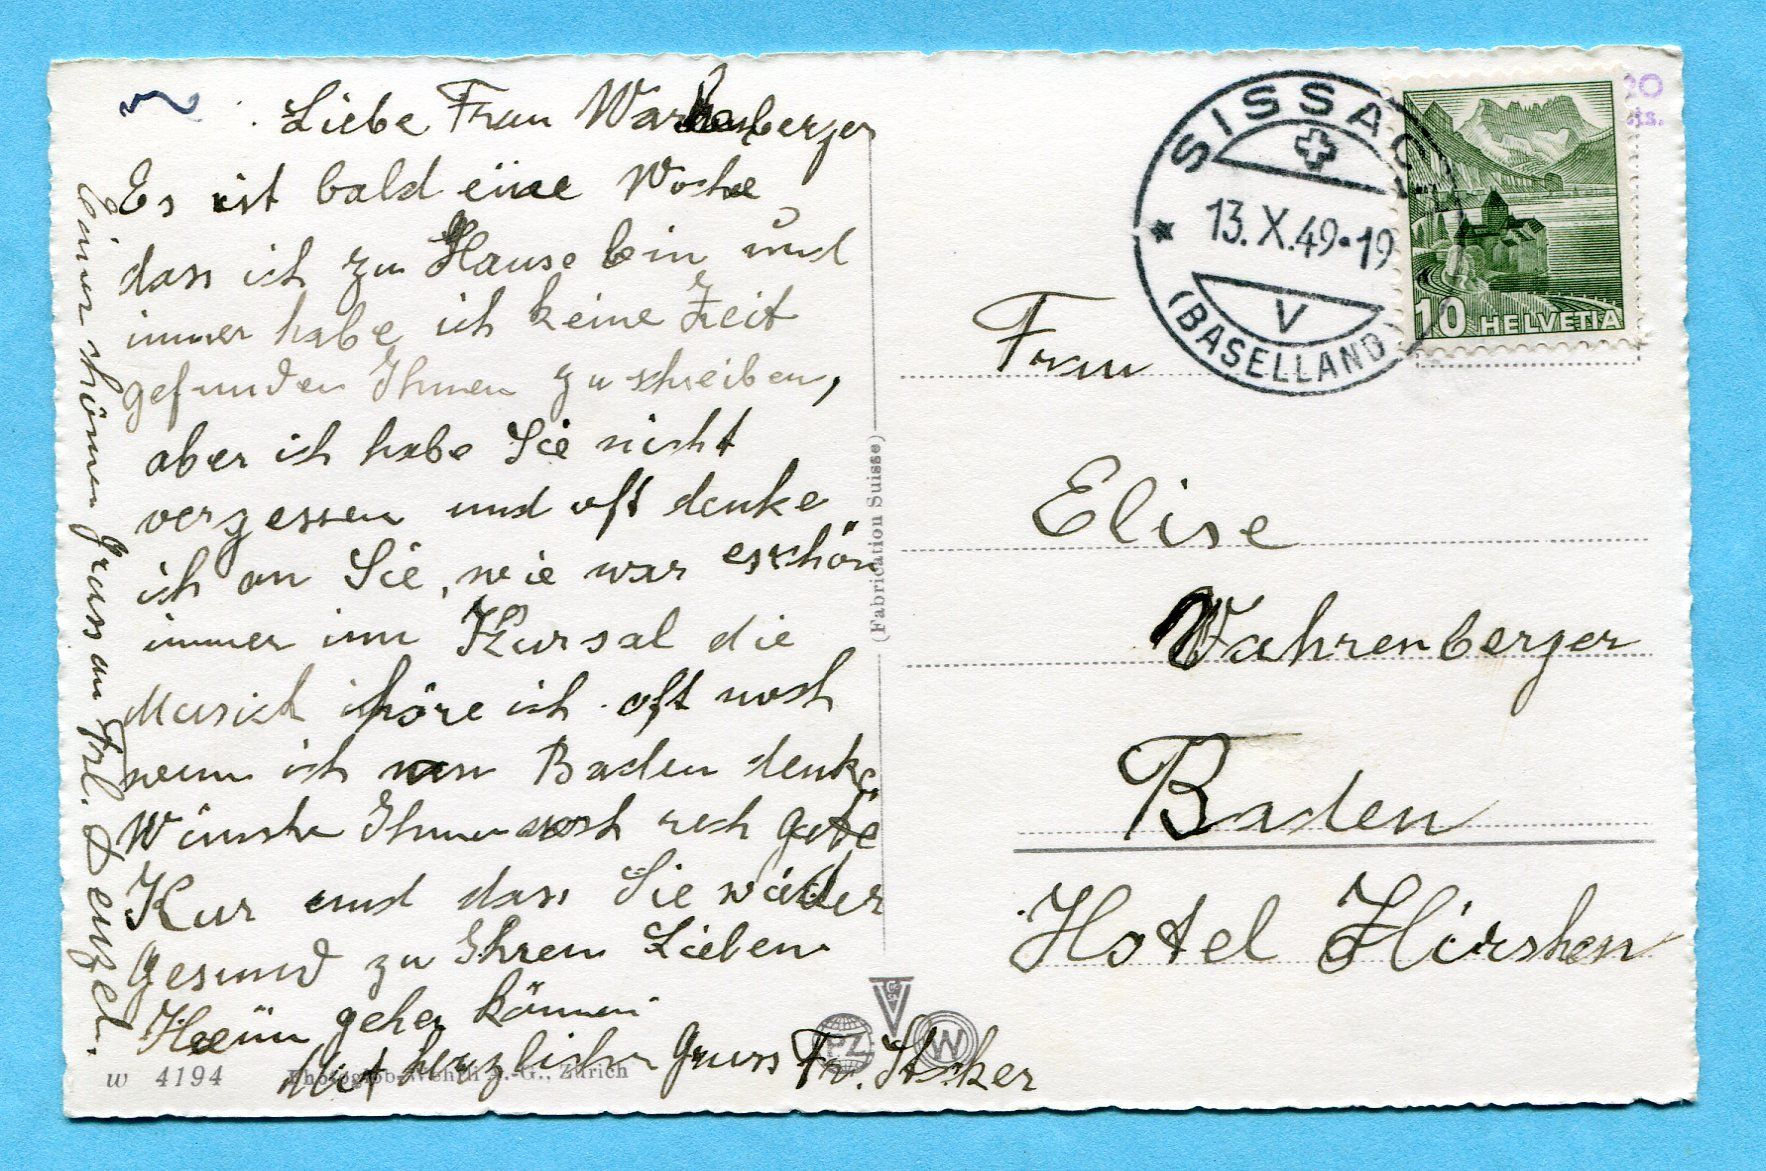 Liebe Frau Warhenberger
Es ist bald eine Woche
dass ich zu Hause bin und
immer habe ich keine Zeit
gefunden Ihnen zu schreiben,
aber ich habe Sie nicht
vergessen und oft denke
ich an Sie, wie war es schön
immer im Kursal die
Musick höre ich oft noch
wenn ich an Baden denke
Wünsche Ihnen noch rech gute
Kur und dass Sie wieder
gesund zu Ihren Lieben
Heim gehen können
Mit herzlichen Gruss Fr.
Einen schönen Gruss an Frl. Denzel.
w 4194 Photoglob-Wehrli A.-G., Zürich
(Fabrication Suisse)
PZ
W
SISSACH
13.X.49-19
V
(BASELLAND)
10 HELVETIA
20
cts.
Frau
Elise
Wahrenberger
Baden
Hotel Hirshen